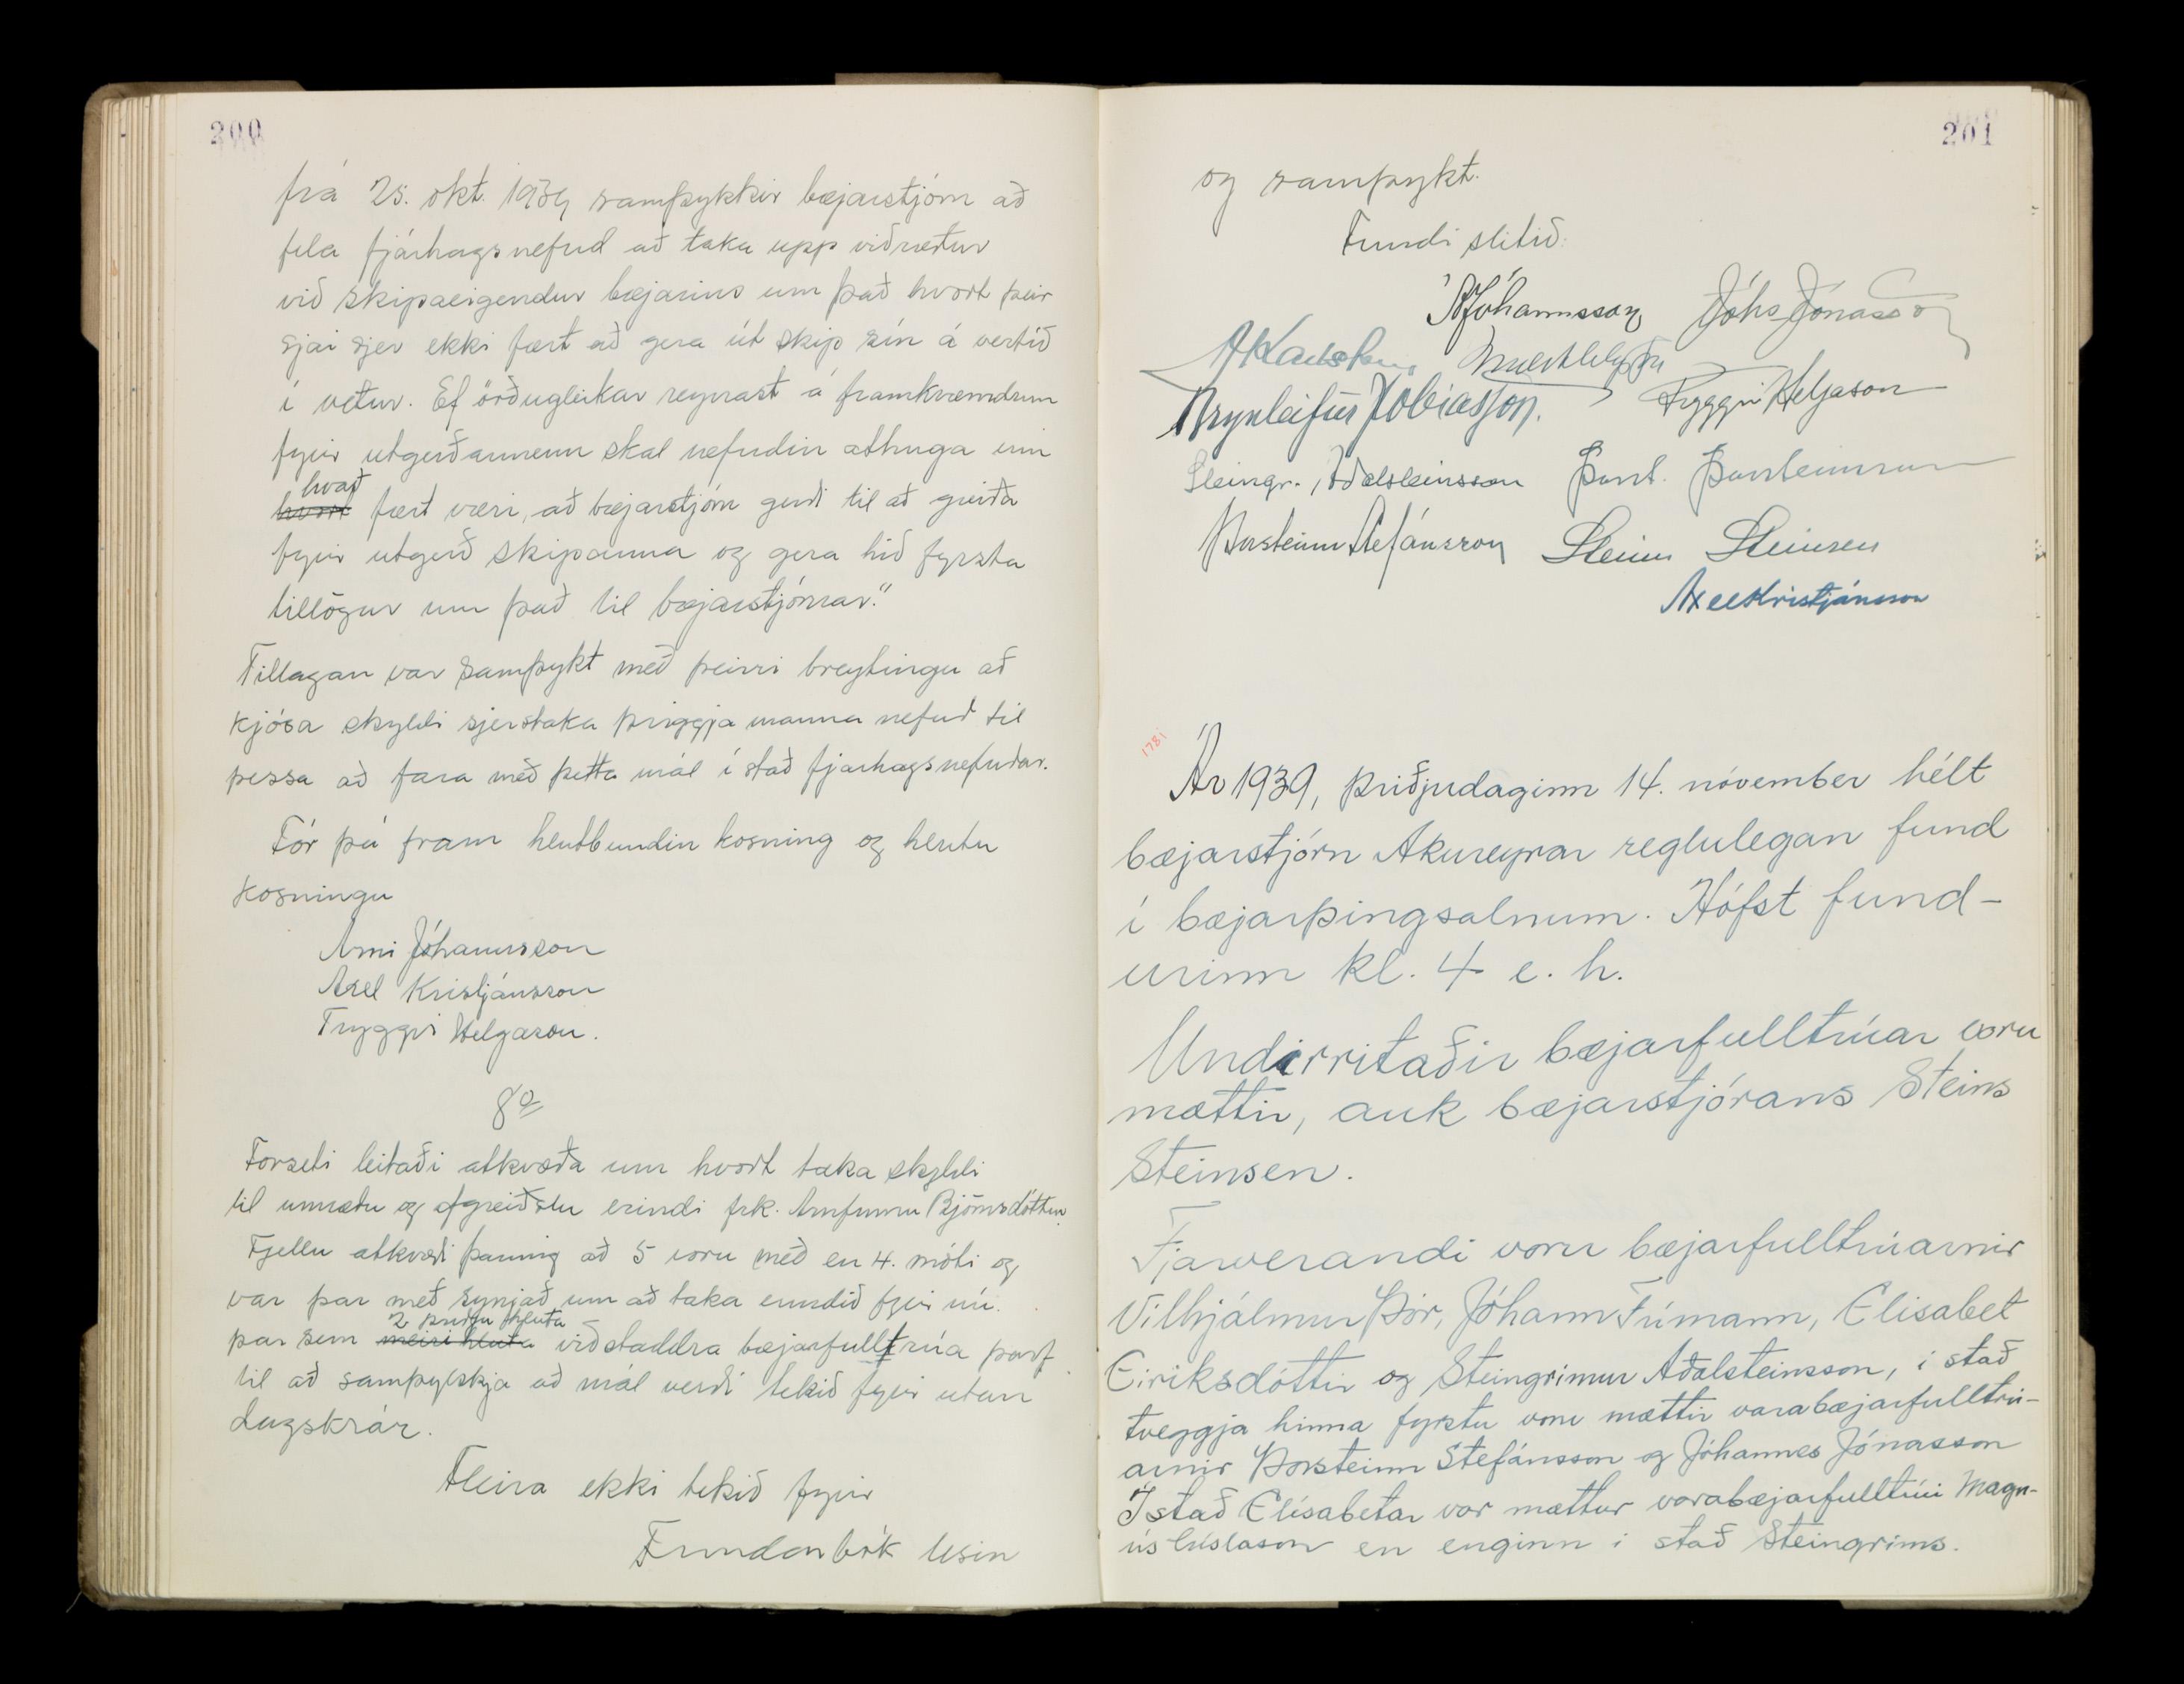 200
frá 25. okt. 1939 samþykkir bæjarstjórn að
fela fjárhagsnefnd að taka upp viðræður
við skipaeigendur bæjarins um það hvort þeir
sjái sjer ekki fært að gera út skip sín á vertíð
í vetur. Ef örðugleikar reynast á framkvæmdum
fyrir utgerðarmenn skal nefndin athuga um
hvað
hvort fært væri, að bæjarstjórn gerði til að greiða
fyrir utgerð skipanna og gera hið fyrsta
tillögur um það til bæjarstjórnar."
Tillagan var samþykt með þeirri breytingu að
kjósa skyldi sjerstaka þriggja manna nefnd til
þessa að fara með þetta mál í stað fjarhagsnefndar.
Fór þá fram hlutbundin kosning og hlutu
kosningu
Árni Jóhannsson
Axel Kristjánsson
Tryggvi Helgason.
8°
Forseti leitaði atkvæða um hvort taka skyldi
til umræðu og afgreiðslu erindi frk. Arnfinnu Björnsdóttur.
Fjellu atkvæði þannig að 5 voru með en 4. móti og
var þar með synjað um að taka erindið fyrir nú.
2 þriðju hluta
þar sem meiri hluta viðstaddra bæjarfulltrúa þarf
til að samþykkja að mál verði tekið fyrir utan
dagskrár.
Fleira ekki tekið fyrir
Fundarbók lesin
201
og samþykt.
Fundi slitið.
ÁJóhannsson Jóhs Jónasson
Brynleifur Tobiasson. Tryggvi Helgason
Steingr. Aðalsteinsson Þorst. Þorsteinsson
Þorsteinn Stefánsson Steinn Steinsen
Axel Kristjánsson
1781
Ár 1939, þriðjudaginn 14. nóvember hélt
bæjarstjórn Akureyrar reglulegan fund
í bæjarþingsalnum. Hófst fund-
urinn kl. 4 e. h.
Undirritaðir bæjarfulltrúar voru
mættir, auk bæjarstjórans Steins
Steinsen.
Fjarverandi voru bæjarfulltrúarnir
Vilhjálmur Þór, Jóhann Frímann, Elisabet
Eiriksdóttir og Steingrimur Aðalsteinsson, í stað
tveggja hinna fyrstu voru mættir varabæjarfulltrú-
arnir Þorsteinn Stefánsson og Jóhannes Jónasson
Í stað Elísabetar var mættur varabæjarfulltrúi Magn-
ús Gíslason en enginn i stað Steingríms.